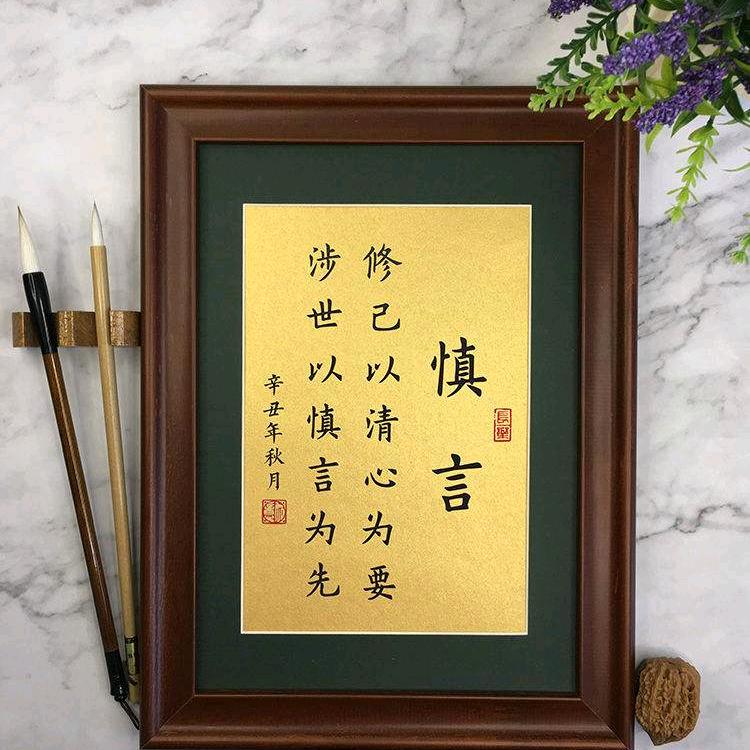 慎言
修己以清心为要
涉世以慎言为先
辛丑年秋月